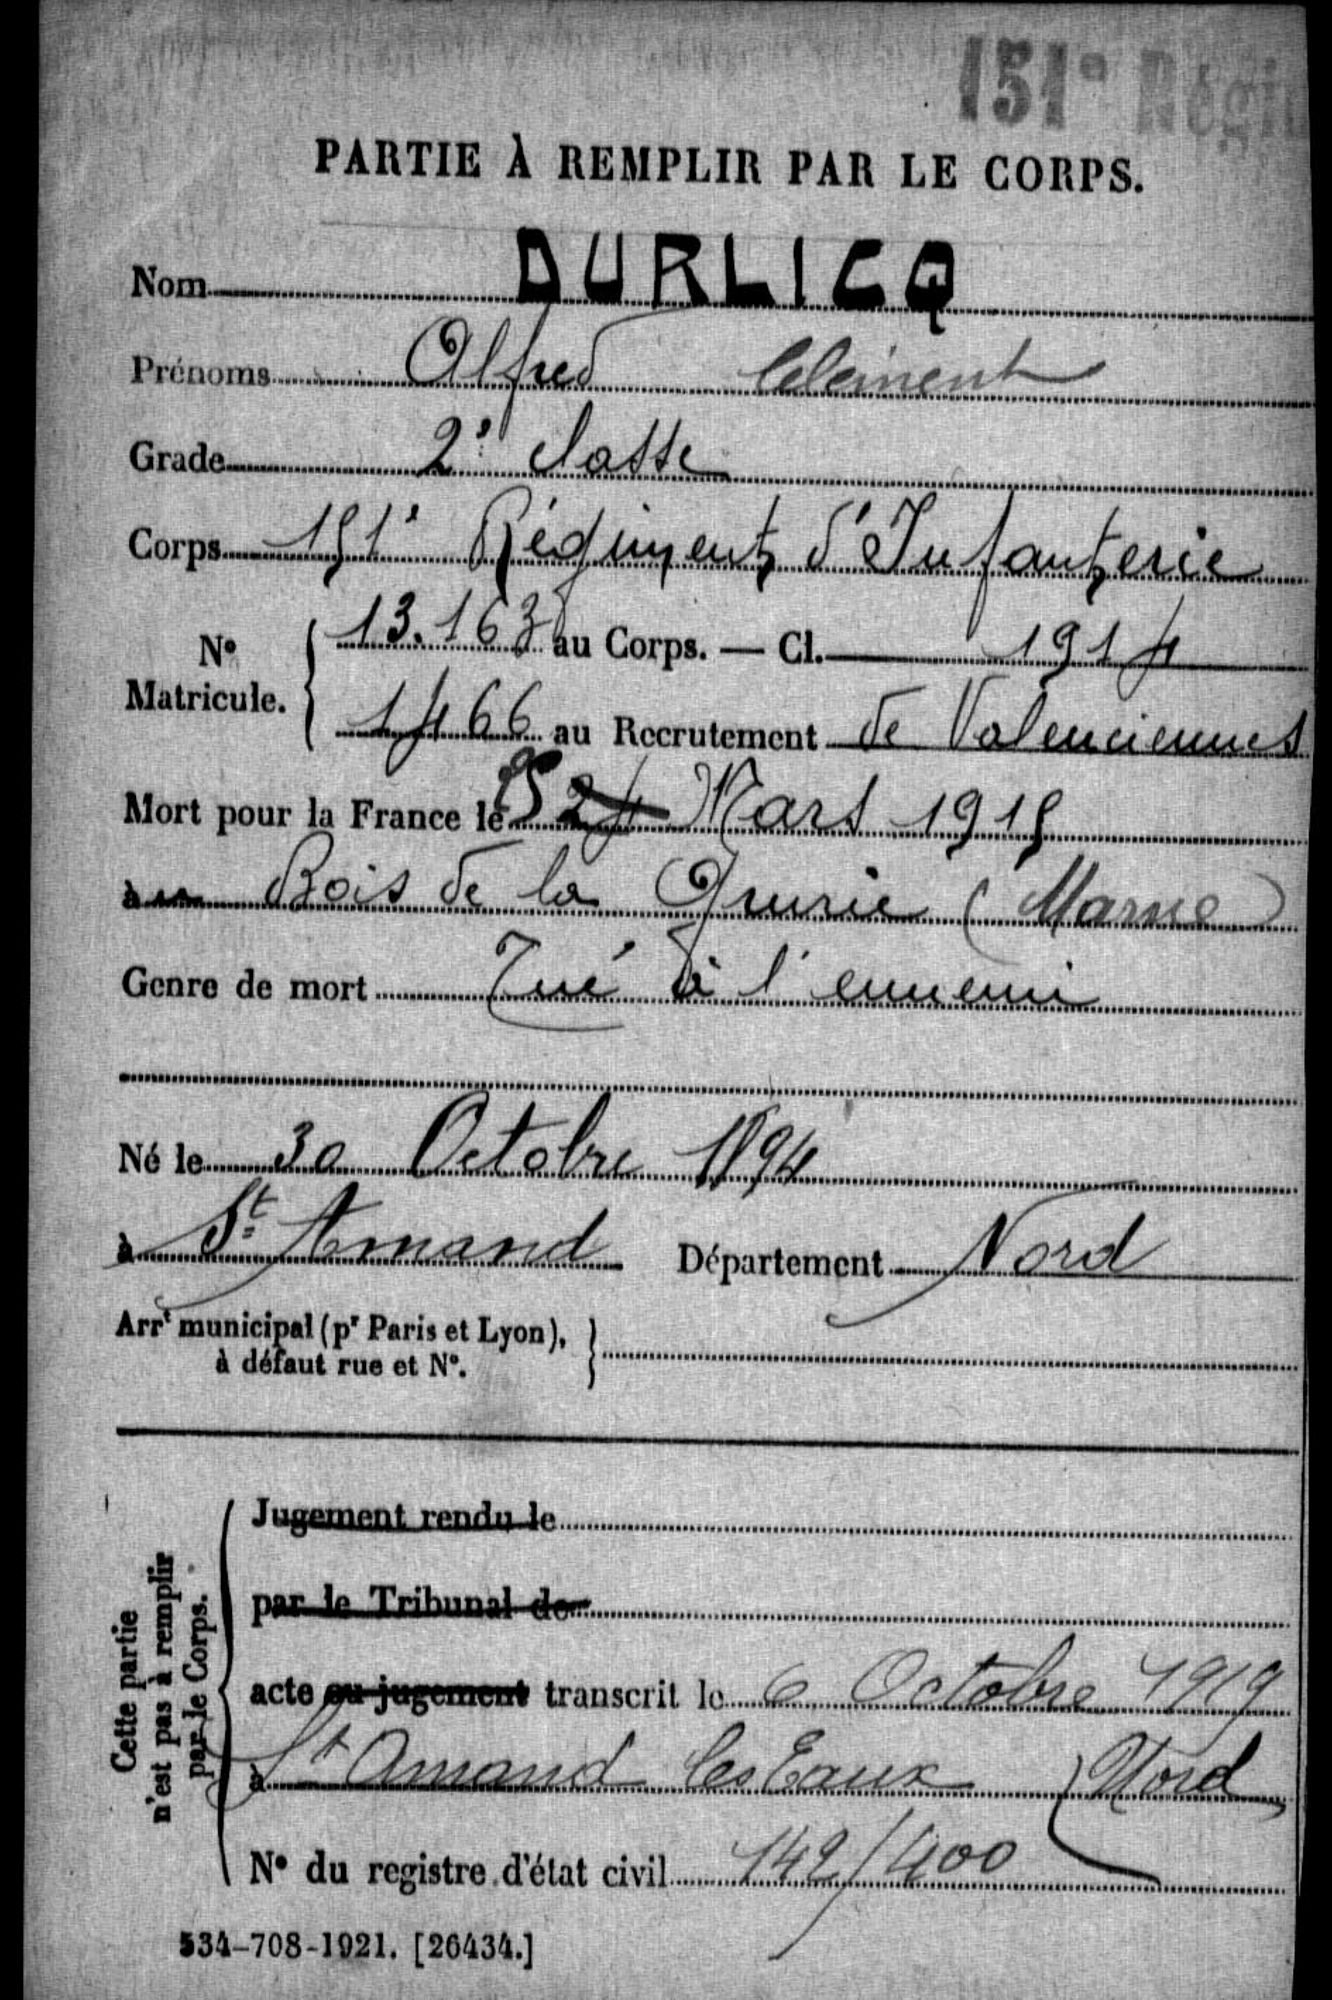 151e Régi
PARTIE À REMPLIR PAR LE CORPS.
Nom DURLICQ
Prénoms Alfred Clément
Grade 2e classe
Corps 151e Régiment d'Infanterie
No Matricule. { 13.163 au Corps. — Cl. 1914
1466 au Recrutement de Valenciennes
Mort pour la France le 24 Mars 1915
à Bois de la Grurie (Marne)
Genre de mort Tué à l'ennemi
Né le 30 Octobre 1894
à St Amand Département Nord
Arrt municipal (pr Paris et Lyon), }
à défaut rue et No.
Cette partie
n'est pas à remplir
par le Corps.
Jugement rendu le
par le Tribunal de
acte ou jugement transcrit le 6 Octobre 1919
à St Amand les Eaux (Nord
No du registre d'état civil 142/400
534-708-1921. [26434.]